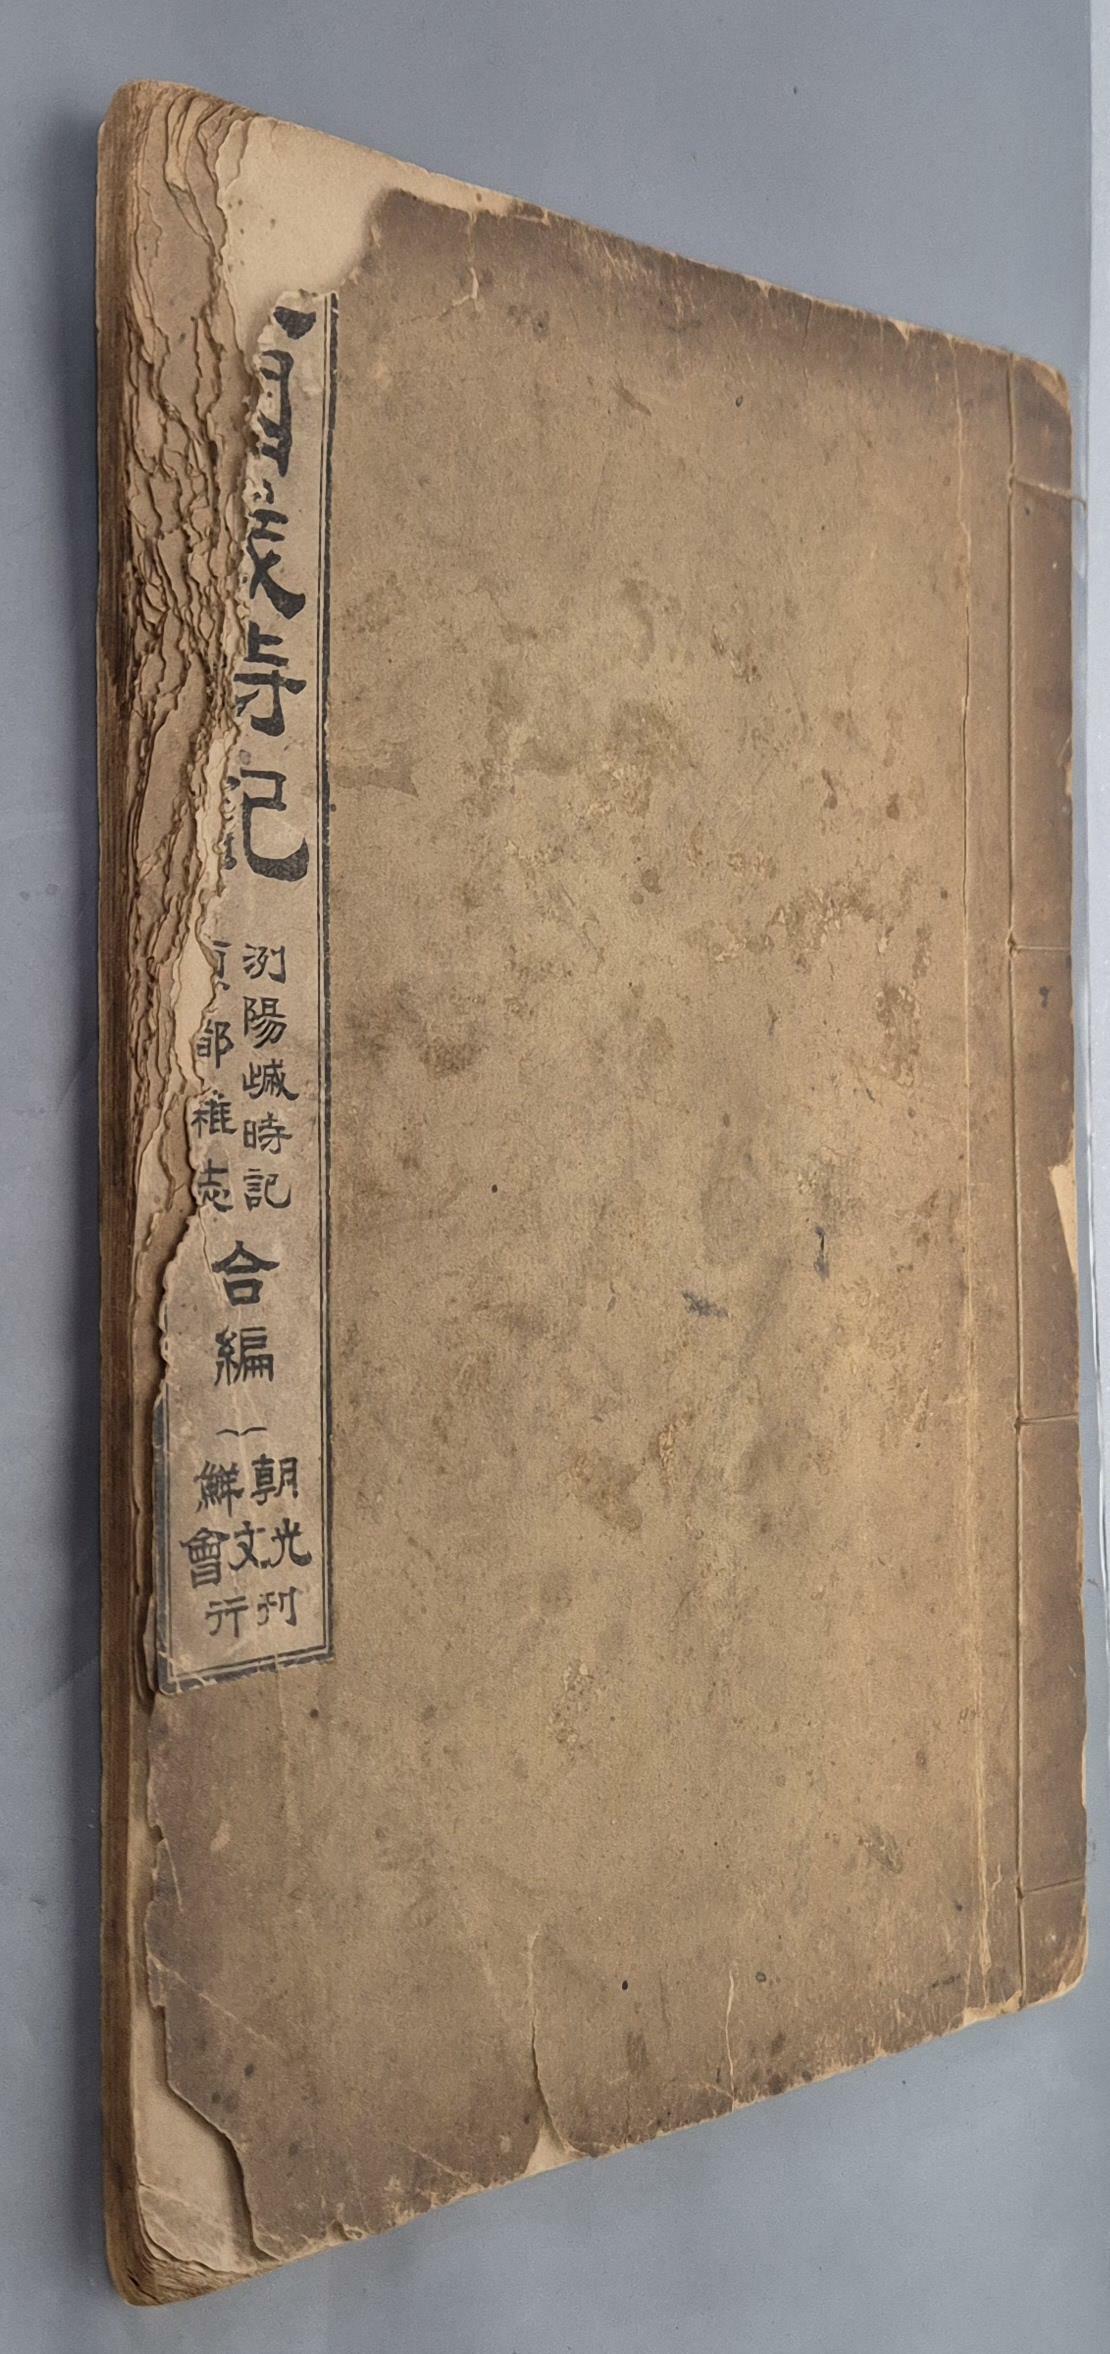 歲時記
洌陽歲時記
都雜志
合編
朝鮮
光文會
刊行